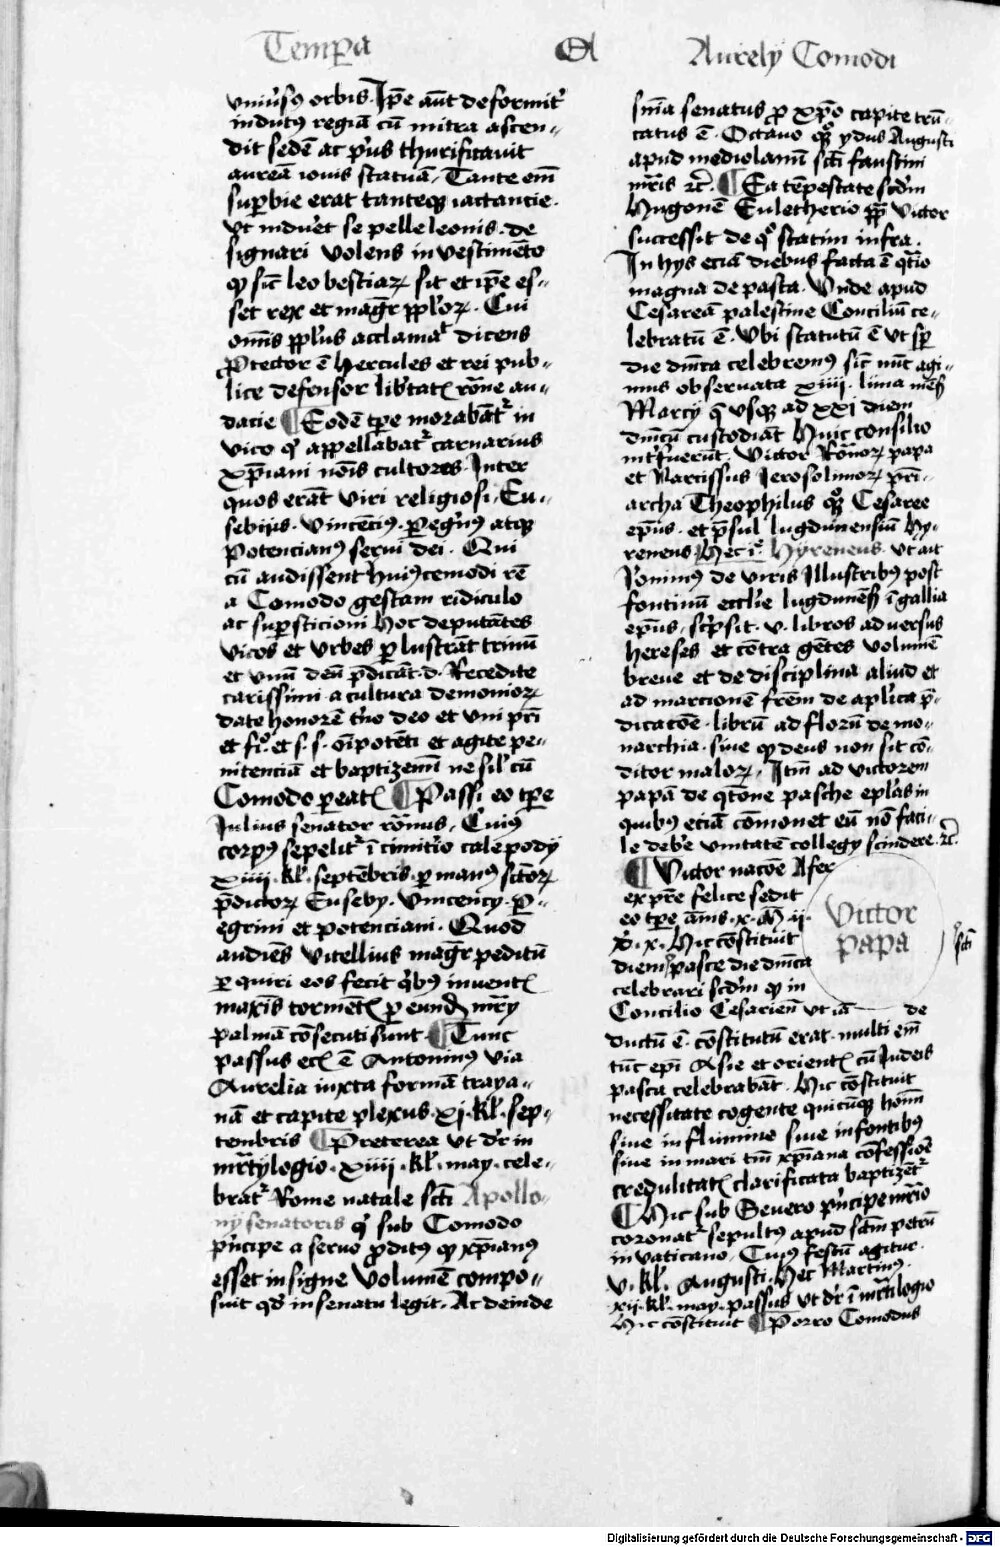 Temp̄a
Aurely Comodi
vniu̓sꝰ orbis. Ip̄e aūt deformit̓
indutꝰ regiā cū mitra ascen„
dit sedē ac p̓us thurificauit
aureā iouis statuā, Tante em̄
suꝑbie erat tanteqꝫ iactantie.
vt induēt se pelle leonis. de
signari volens in vestimēto
ꝙ sic̄ leo bestiaꝝ sit et ip̄e es„
set rex et magr̄ ppl̓oꝝ. Cui
om̄is ppl̓us acclamat̓ dicens
ꝓtector ē Hercules et rei pub„
lice defensor lib̓tatꝭ rōne au„
dacie ¶ Eodē tꝑe morabāt᷑ in
vico q̓ appellabat᷑ carnarius
xp̄iani nōis cultores. Inter
quos erāt viri religiosi. Eu„
sebius. Vincēciꝰ. ꝑegrinꝰ atqꝫ
Potencianꝰ serui dei. Qui
cū audissent huiꝰcemodi rē
a Comodo gestam ridiculo
ac suꝑsticioni hoc deputātes
vicos et vrbes ꝑlustrāt trinū
et vnū deū p̄dicāt. d. Recedite
carissimi a cultura demonioꝝ
date honorē t̓no deo et vni pr̄i
et fi͛. et s. s. oīpotēti et agite pe„
nitenciā et baptizemī ne sil̓ cū
Comodo pereatꝭ ¶ Passi eo tꝑe
Julius senator rōnus, Cuiꝰ
corpꝰ sepelit᷑ ī cimit̓io calepody
xiiii. kl̓. septēbris. ꝑ manꝰ sc̄toꝝ
p̄dictoꝝ Euseby. Vincency. Ꝑ„
egrini et potenciani. Quod
audiēs vitellius magr̄ peditū
ꝑquiri eos fecit q̓bꝰ inuentꝭ
maxīs tormētꝭ ꝑ eund̄ mr̄y
palmā cōsecuti sunt. ¶ Tunc
passus eciā ē Antoninꝰ via
Aurelia iuxta formā traya„
nā et capite plexus. xj. kl̓. sep„
tenbris ¶ Preterea vt dr̄ in
mr̓tylogio. xiiii. kl̓. may. cele„
brat᷑ Rome natale sc̄ti Apollo„
ny senatoris q̓ sub Comodo
p̓ncipe a seruo ꝓditꝰ ꝙ xp̄ianꝰ
esset insigne volumē compo„
suit qd̓ in senatu legit. Ac deinde
sn̄ia senatus ꝓ xp̄o capite trū„
catus ē. Octauo qꝫ ydus Augusti
apud mediolanū sc̄ti faustini
mr̄is ⁊c̄. ¶ Ea tēpestate scd̓m
Hugonē Euletherio pp̄ Victor
successit de q° statim infra.
In hys eciā diebus facta ē q̄tio
magna de pasca. Vnde apud
Cesareā palestine Conciliū ce„
lebratū ē. Vbi statutū ē vt sꝑ
die dn̄ica celebremꝰ sic̄ nūc agi„
mus obseruata xiiij. luna mēs̄
Marcy q̄ vsqꝫ ad xxi diem
dn̄icū custodiāt Huic consilio
int̓fuerūt. Victor Rōnoꝝ papa
et Narcissus Jerosolimoꝝ pr̄i„
archa Theophilus qꝫ Cesaree
ep̄us. et p̄sul lugdunensiū Hy„
reneus Hyreneus. vt ait
Jeronimꝰ de viris Illustribꝰ post
fontinū eccl̓ie lugdunēs̄ ī gallia
ep̄us, sc̓psit. v. libros aduersus
hereses et cōtra gētes volumē
breue et de disciplina aliud et
ad marcionē frēm de apl̓ica p̄„
dicacōe. librū ad florū de mo„
narchia. siue ꝙ deus non sit cō„
ditor maloꝝ, Itm̄ ad victorem
papā de q̄tōne pasche epl̓as in
quibus eciā cōmonet eū nō faci„
le deb̓e vnitatē collegy scindere. ⁊c̄.
¶ Victor nacōe Afer
ex pr̄e felice sedit
eo tꝑe ānis. x. M̄. ii.
d̄. x. Hic cōstituit
diem pasce die dn̄ica
celebrari scd̓m ꝙ in
Concilio Cesarien̄ vt iā de
ductū ē. cōstitutū erat. multi em̄
tūc ep̄i Asie et orientꝭ cū Judeis
pasca celebrabāt. Hic cōstituit
necessitate cogente quicūqꝫ homn̄
siue in flumine siue in fontibꝰ
siue in mari tm̄ xp̄iana cōfessiōe
credulitatꝭ clarificata baptizet᷑
¶ Hic sub Seuero p̓ncipe mr̄io
coronat᷑ sepultꝰ apud sc̄tm petrū
in vaticano, Cuiꝰ festū agitur.
v. kl̓. Augusti. Hec Martinꝰ.
xii. kl̓. may. passus vt dr̄ ī mr̄ilogio
Hic cōstituit ¶ Porro Comodus
Victor
papa
Digitalisierung gefördert durch die Deutsche Forschungsgemeinschaft - DFG